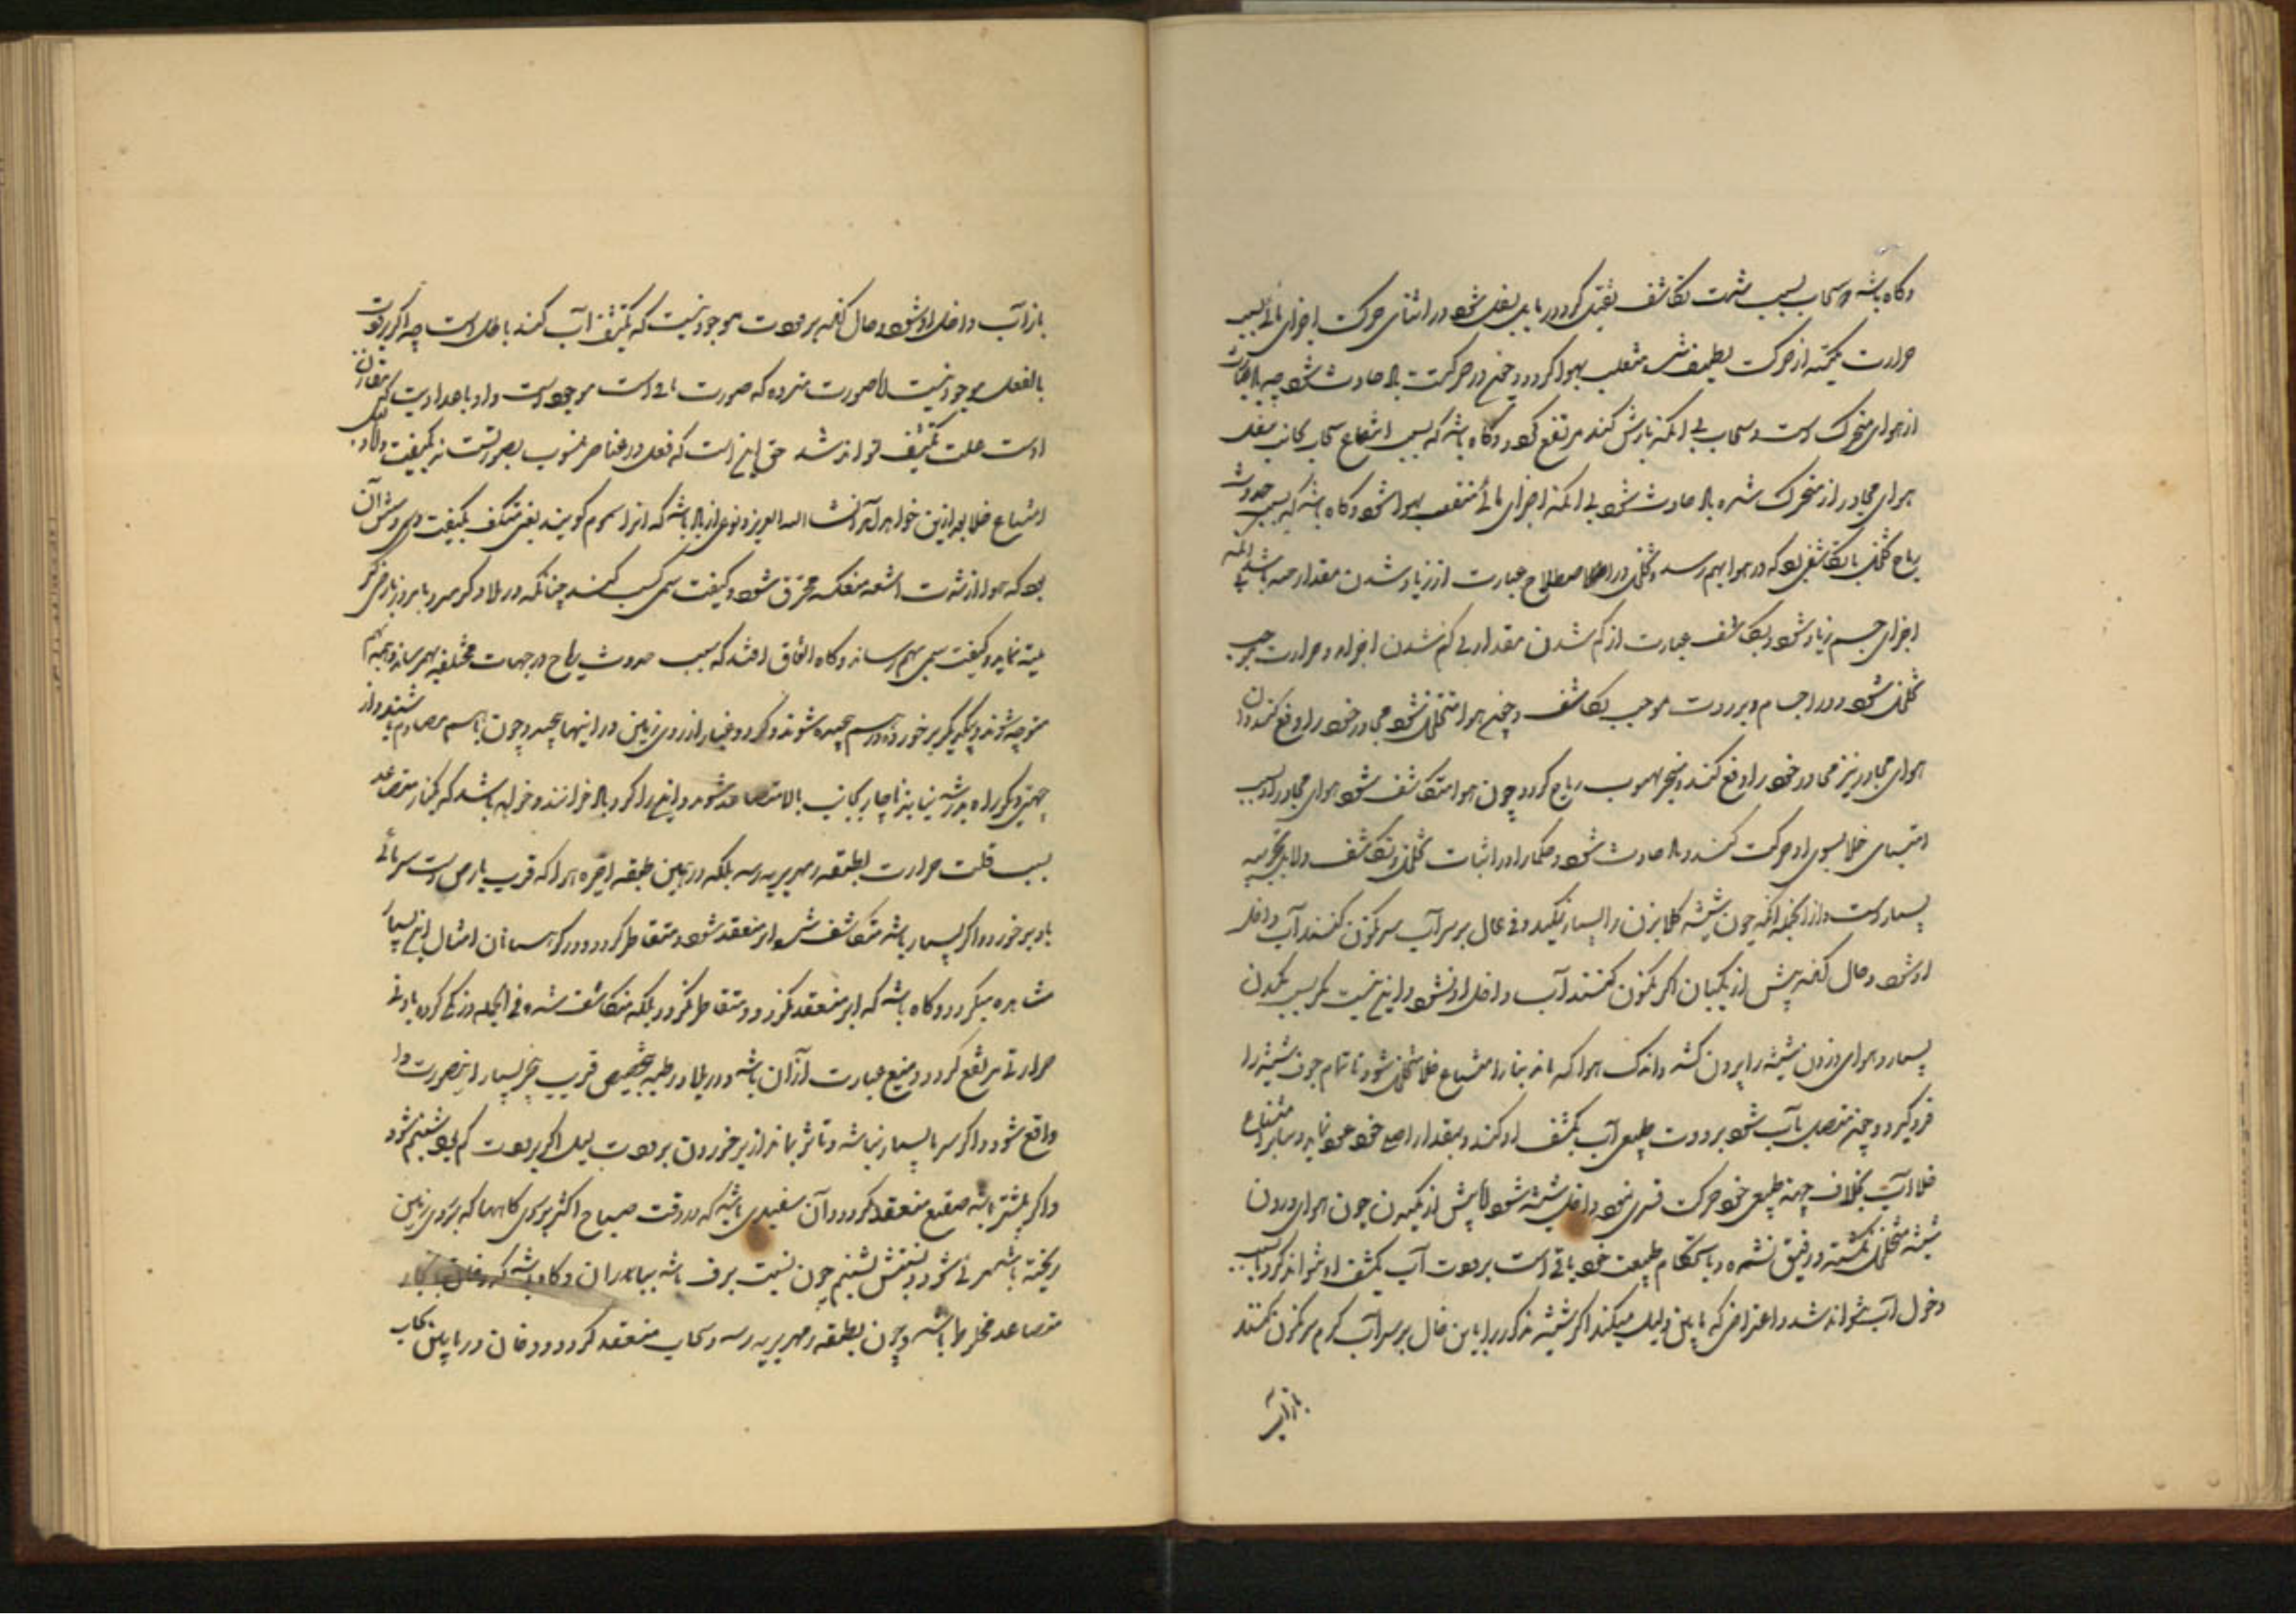 و گاه باشد و سحاب بسبب شدت تکاثف ثقیل گردد و مایل بسفل شود و در اثنای حرکت اجزای مائی بسبب
حرارت مکتسبه از حرکت لطیف شده منقلب بهوا گردد و حینئذ در حرکت باد حادث شود چه باد عبارت
از هوای متحرک است و سحاب بی آنکه بارش کند مرتفع گردد و گاه باشد که بسبب اندفاع سحاب بجانب سفل
هوای مجاور از متحرک شده باد حادث شود بی آنکه اجزای مائی منقلب بهوا شود و گاه باشد که سبب حدوث
ریاح تخلخل یا تکاثفی بود که در هوا بهم رسد و تخلخل در اصطلاح عبارت از زیاد شدن مقدار جسم باشد بی آنکه
اجزای جسم زیاد شود و تکاثف عبارت از کم شدن مقدار بی کم شدن اجزاء و حرارت موجب
تخلخل شود در اجسام و برودت موجب تکاثف و حینئذ هوا متخلخل شود مجاور خود را دفع کند و آن
هوای مجاور نیز مجاور خود را دفع کند و منجر بهبوب ریاح گردد و چون هوا متکاثف شود هوای مجاور او بسبب
امتناع خلا بسوی او حرکت کند و باد حادث شود و حکما را در اثبات تخلخل و تکاثف دلایل تجربیه
بسیار است و از آنجمله آنکه چون شیشه گلابزن را بسیار بمکند و فی الحال بر سر آب سرنگون کنند آب داخل
او شود و حال آنکه پیش از مکیدن اگر نگون کنند آب داخل او نشود و این نیست مگر بسبب مکیدن
بسیار و هوای درون شیشه را بیرون کشد و اندک هوا که ماند بنابر امتناع خلا متخلخل شود تا تمام جوف شیشه را
فرو گیرد و حینئذ متصل بآب شود برودت طبیعی آب تکثیف او کند و بمقدار اصلی خود عود نماید و بنابر امتناع
خلا آب بخلاف جهة طبیعی خود حرکت قسری نموده داخل شیشه شود اما پیش از مکیدن چون هوای درون
شیشه متخلخل نگشته و رقیق نشده و باستحکام طبیعت خود باقی است برودت آب تکثیف او نتواند کرد و سبب
دخول آب نتواند شد و اعتراض که باین دلیل میکنند اگر شیشه مذکور را باین حال بر سر آب گرم سرنگون کنند
باز آب
باز آب داخل او شود و حال آنکه برودت موجود نیست که تکثیف آب کند باطل است چه اگر برودت
بالفعل موجود نیست اما صورت مبرده که صورت مائی است موجود است و او باعداد برودت که مقارن
اوست علت تکثیف تواند شد حق این است که فعل در عناصر منسوب بصورتست نه بکیفیت و دلایل
امتناع خلا بعد ازین خواهد آمد انشاء الله العزیز و نوعی از باد باشد که آنرا سموم گویند یعنی متکیف بکیفیت سمی و منشأ آن
بود که هوا از شدت اشعه منعکسه محترق شود و کیفیت سمی کسب کند چنانکه در بلاد گرمسیر یا بمرور بارض
میته نماید و کیفیت سمی بهم رساند و گاه اتفاق افتد که بسبب حدوث ریاح در جهات مختلفه بهم رسانند و بجهة هم
متوجه شوند و بیکدیگر برخورده در هم پیچیده شوند و گرد و غبار از روی زمین در آنها پیچد و چون با هم مصادم باشند و از
جهتی دیگر راه بدر شدن نیابند ناچار بجانب بالا متصاعد شوند و این را گردباد خوانند و خواه باشد که بخار متصاعد
بسبب قلت حرارت بطبقه زمهریریه نرسد بلکه در همین طبقه اخیره هوا که قریب بارض است سرمائی
باو برخورد و اگر بسیار باشد متکاثف شود و ابر منعقد شود و متقاطر گردد و در کوهستان امثال این بسیار
مشاهده میگردد و گاه باشد که ابر منعقد نگردد و متقاطر نگردد بلکه متکاثف شده فی الجمله درنگی کرده باز
حرارتی مرتفع گردد و میغ عبارت از آن باشد و در بلاد رطبه بتخصیص قریب ببحر بسیار این صورت
واقع شود و اگر سرما بسیار نباشد و بتأثر بماند از برخوردن برودت لیل اگر برودت کم بود شبنم شود
و اگر بیشتر باشد صقیع منعقد گردد و آن سفیدی باشد که در وقت صباح اکثر بر روی گیاهها که بر روی زمین
ریخته باشد مرئی شود و نسبتش بشبنم چون نسبت برف باشد بباران و گاه باشد که دخان با بخار
متصاعد مخلوط باشد و چون بطبقه زمهریریه رسد و سحاب منعقد گردد و دخان در مابین سحاب